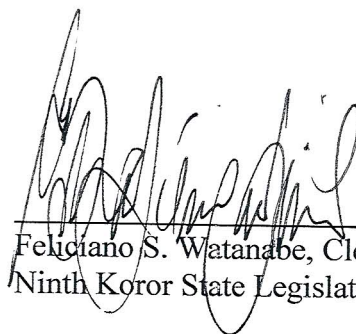 Feliciano S. Watanabe, Cle
Ninth Koror State Legislat